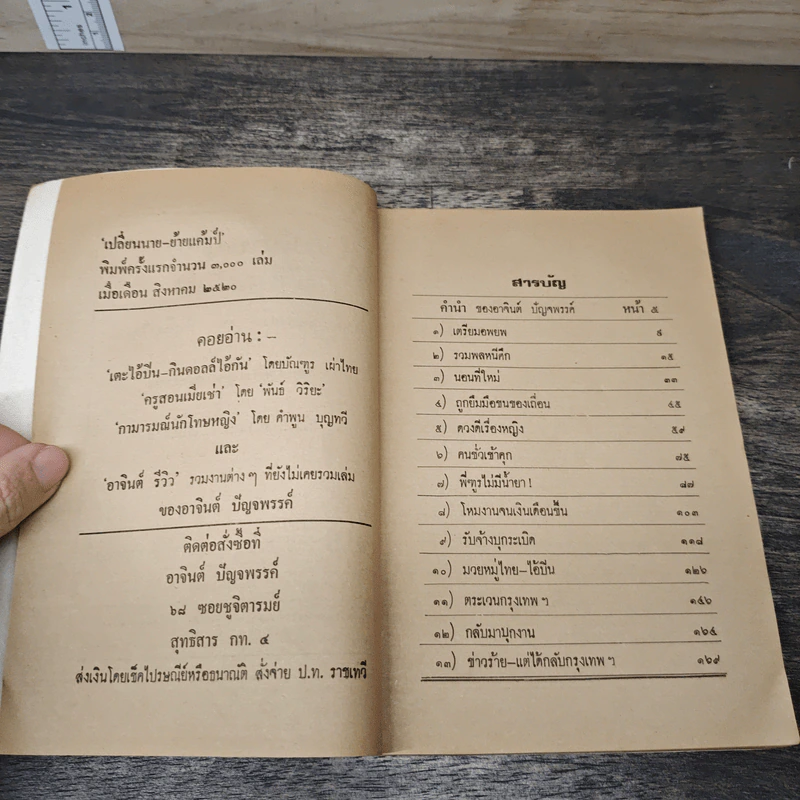 'เปลี่ยนนาย-ย้ายแค้มป์'
พิมพ์ครั้งแรกจำนวน ๓,๐๐๐ เล่ม
เมื่อเดือน สิงหาคม ๒๕๒๐
คอยอ่าน : -
'เตะไอ้ปืน-กินดอลล์ไอ้กัน' โดยบัณฑูร เผ่าไทย
'ครูสอนเมียเช่า' โดย 'พันธ์ วิริยะ'
'กามารมณ์นักโทษหญิง' โดย คำพูน บุญทวี
และ
'อาจินต์ รีวิว' รวมงานต่าง ๆ ที่ยังไม่เคยรวมเล่ม
ของอาจินต์ ปัญจพรรค์
ติดต่อสั่งซื้อที่
อาจินต์ ปัญจพรรค์
๖๘ ซอยชูจิตารมย์
สุทธิสาร กท. ๔
ส่งเงินโดยเช็คไปรษณีย์หรือธนาณัติ สั่งจ่าย ป.ท. ราชเทวี
สารบัญ
คำนำ ของอาจินต์ ปัญจพรรค์ หน้า ๕
๑) เตรียมอพยพ ๙
๒) รวมพลหนีศึก ๑๕
๓) นอนที่ใหม่ ๓๓
๔) ถูกยืมมือขนของเถื่อน ๔๕
๕) ดวงดีเรื่องหญิง ๕๙
๖) คนชั่วเข้าคุก ๗๕
๗) พี่ฑูรไม่มีน้ำยา ! ๘๗
๘) โหมงานจนเงินเดือนขึ้น ๑๐๓
๙) รับจ้างบุกระเบิด ๑๑๘
๑๐) มวยหมู่ไทย-ไอ้ปืน ๑๒๖
๑๑) ตระเวนกรุงเทพ ฯ ๑๔๖
๑๒) กลับมาบุกงาน ๑๖๔
๑๓) ข่าวร้าย-แต่ได้กลับกรุงเทพ ฯ ๑๖๙